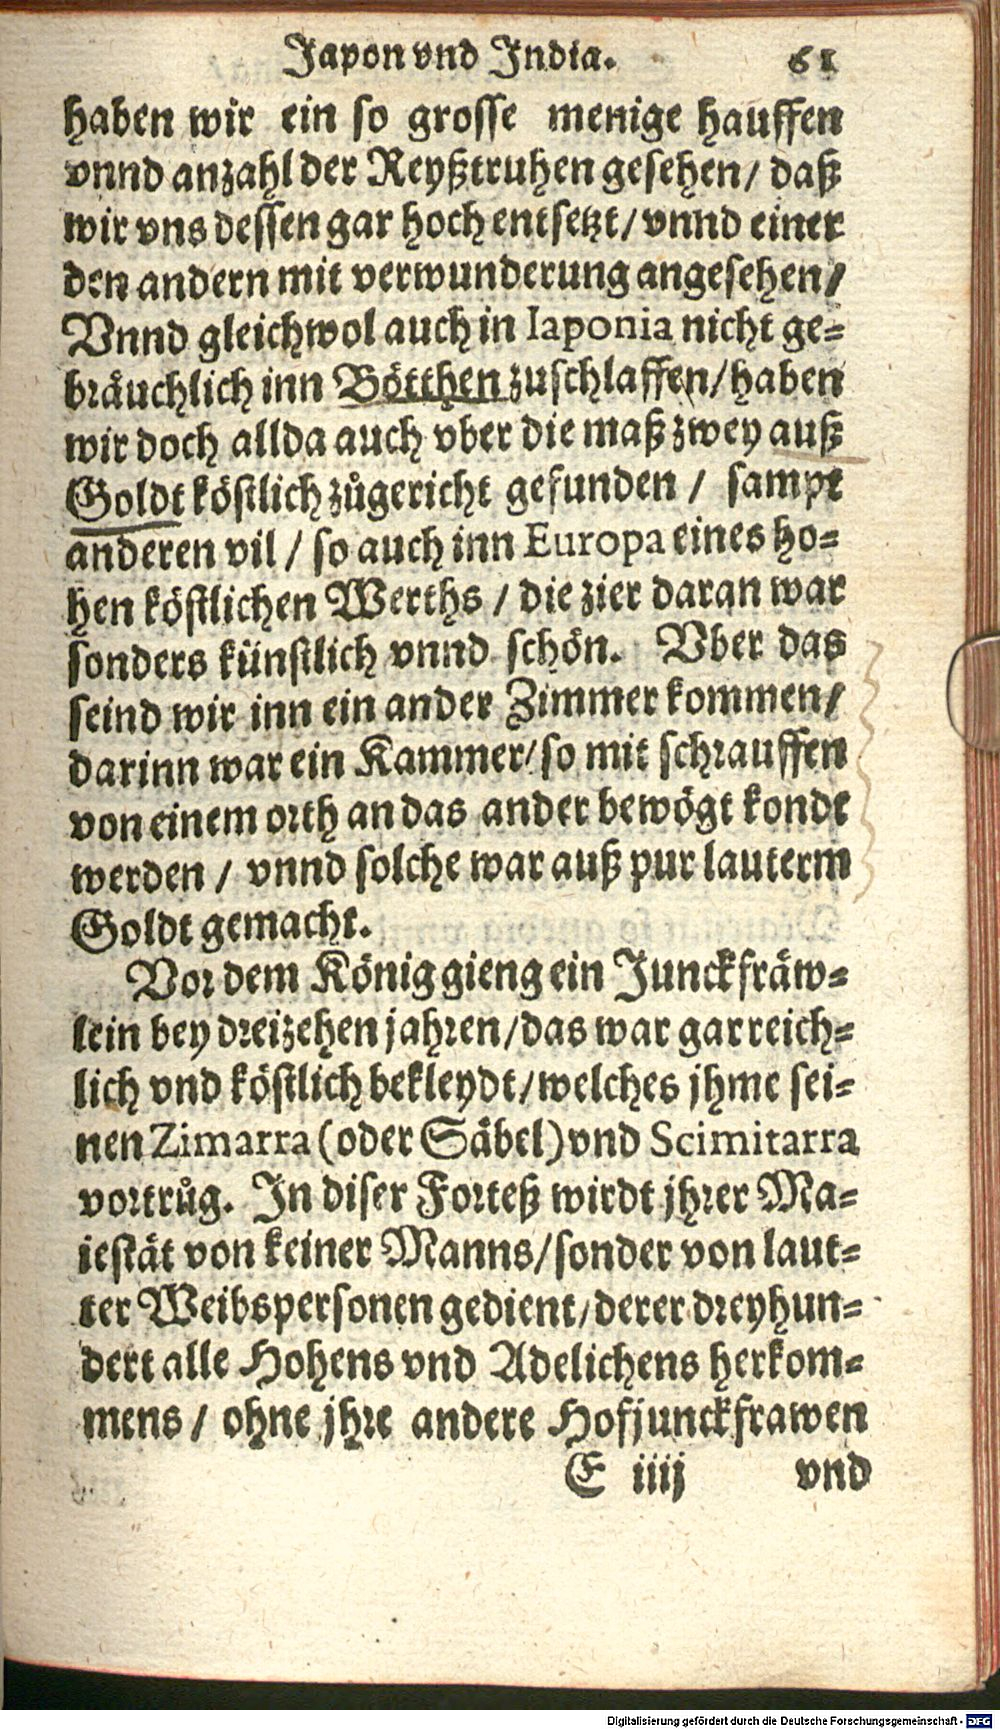 Japon vnd India. 61
haben wir ein so grosse menige hauffen
vnnd anzahl der Reyßtruhen gesehen/ daß
wir vns dessen gar hoch entsetzt/ vnnd einer
den andern mit verwunderung angesehen/
Vnnd gleichwol auch in Iaponia nicht ge=
bräuchlich inn Bötthen zuschlaffen/ haben
wir doch allda auch vber die maß zwey auß
Goldt köstlich zůgericht gefunden / sampt
anderen vil / so auch inn Europa eines ho=
hen köstlichen Werths / die zier daran war
sonders künstlich vnnd schön. Vber das
seind wir inn ein ander Zimmer kommen/
darinn war ein Kammer/ so mit schrauffen
von einem orth an das ander bewögt kondt
werden / vnnd solche war auß pur lauterm
Goldt gemacht.
Vor dem König gieng ein Junckfräw=
lein bey dreizehen jahren/ das war gar reich=
lich vnd köstlich bekleydt/ welches jhme sei=
nen Zimarra (oder Säbel) vnd Scimitarra
vortrůg. In diser Forteß wirdt jhrer Ma=
iestät von keiner Manns/ sonder von laut=
ter Weibspersonen gedient/ derer dreyhun=
dert alle Hohens vnd Adelichens herkom=
mens / ohne jhre andere Hofjunckfrawen
E iiij vnd
Digitalisierung gefördert durch die Deutsche Forschungsgemeinschaft - DFG